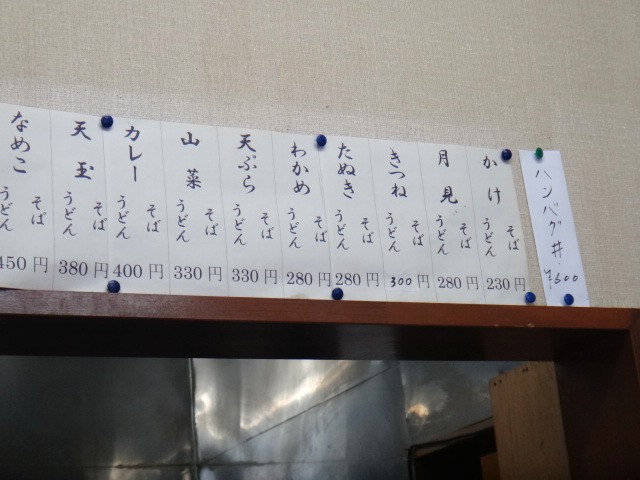 ハンバグ丼
¥600
かけ
そば
うどん
230円
月見
そば
うどん
280円
きつね
そば
うどん
300円
たぬき
そば
うどん
280円
わかめ
そば
うどん
280円
天ぷら
そば
うどん
330円
山菜
そば
うどん
330円
カレー
そば
うどん
400円
天玉
そば
うどん
380円
なめこ
うどん
450円